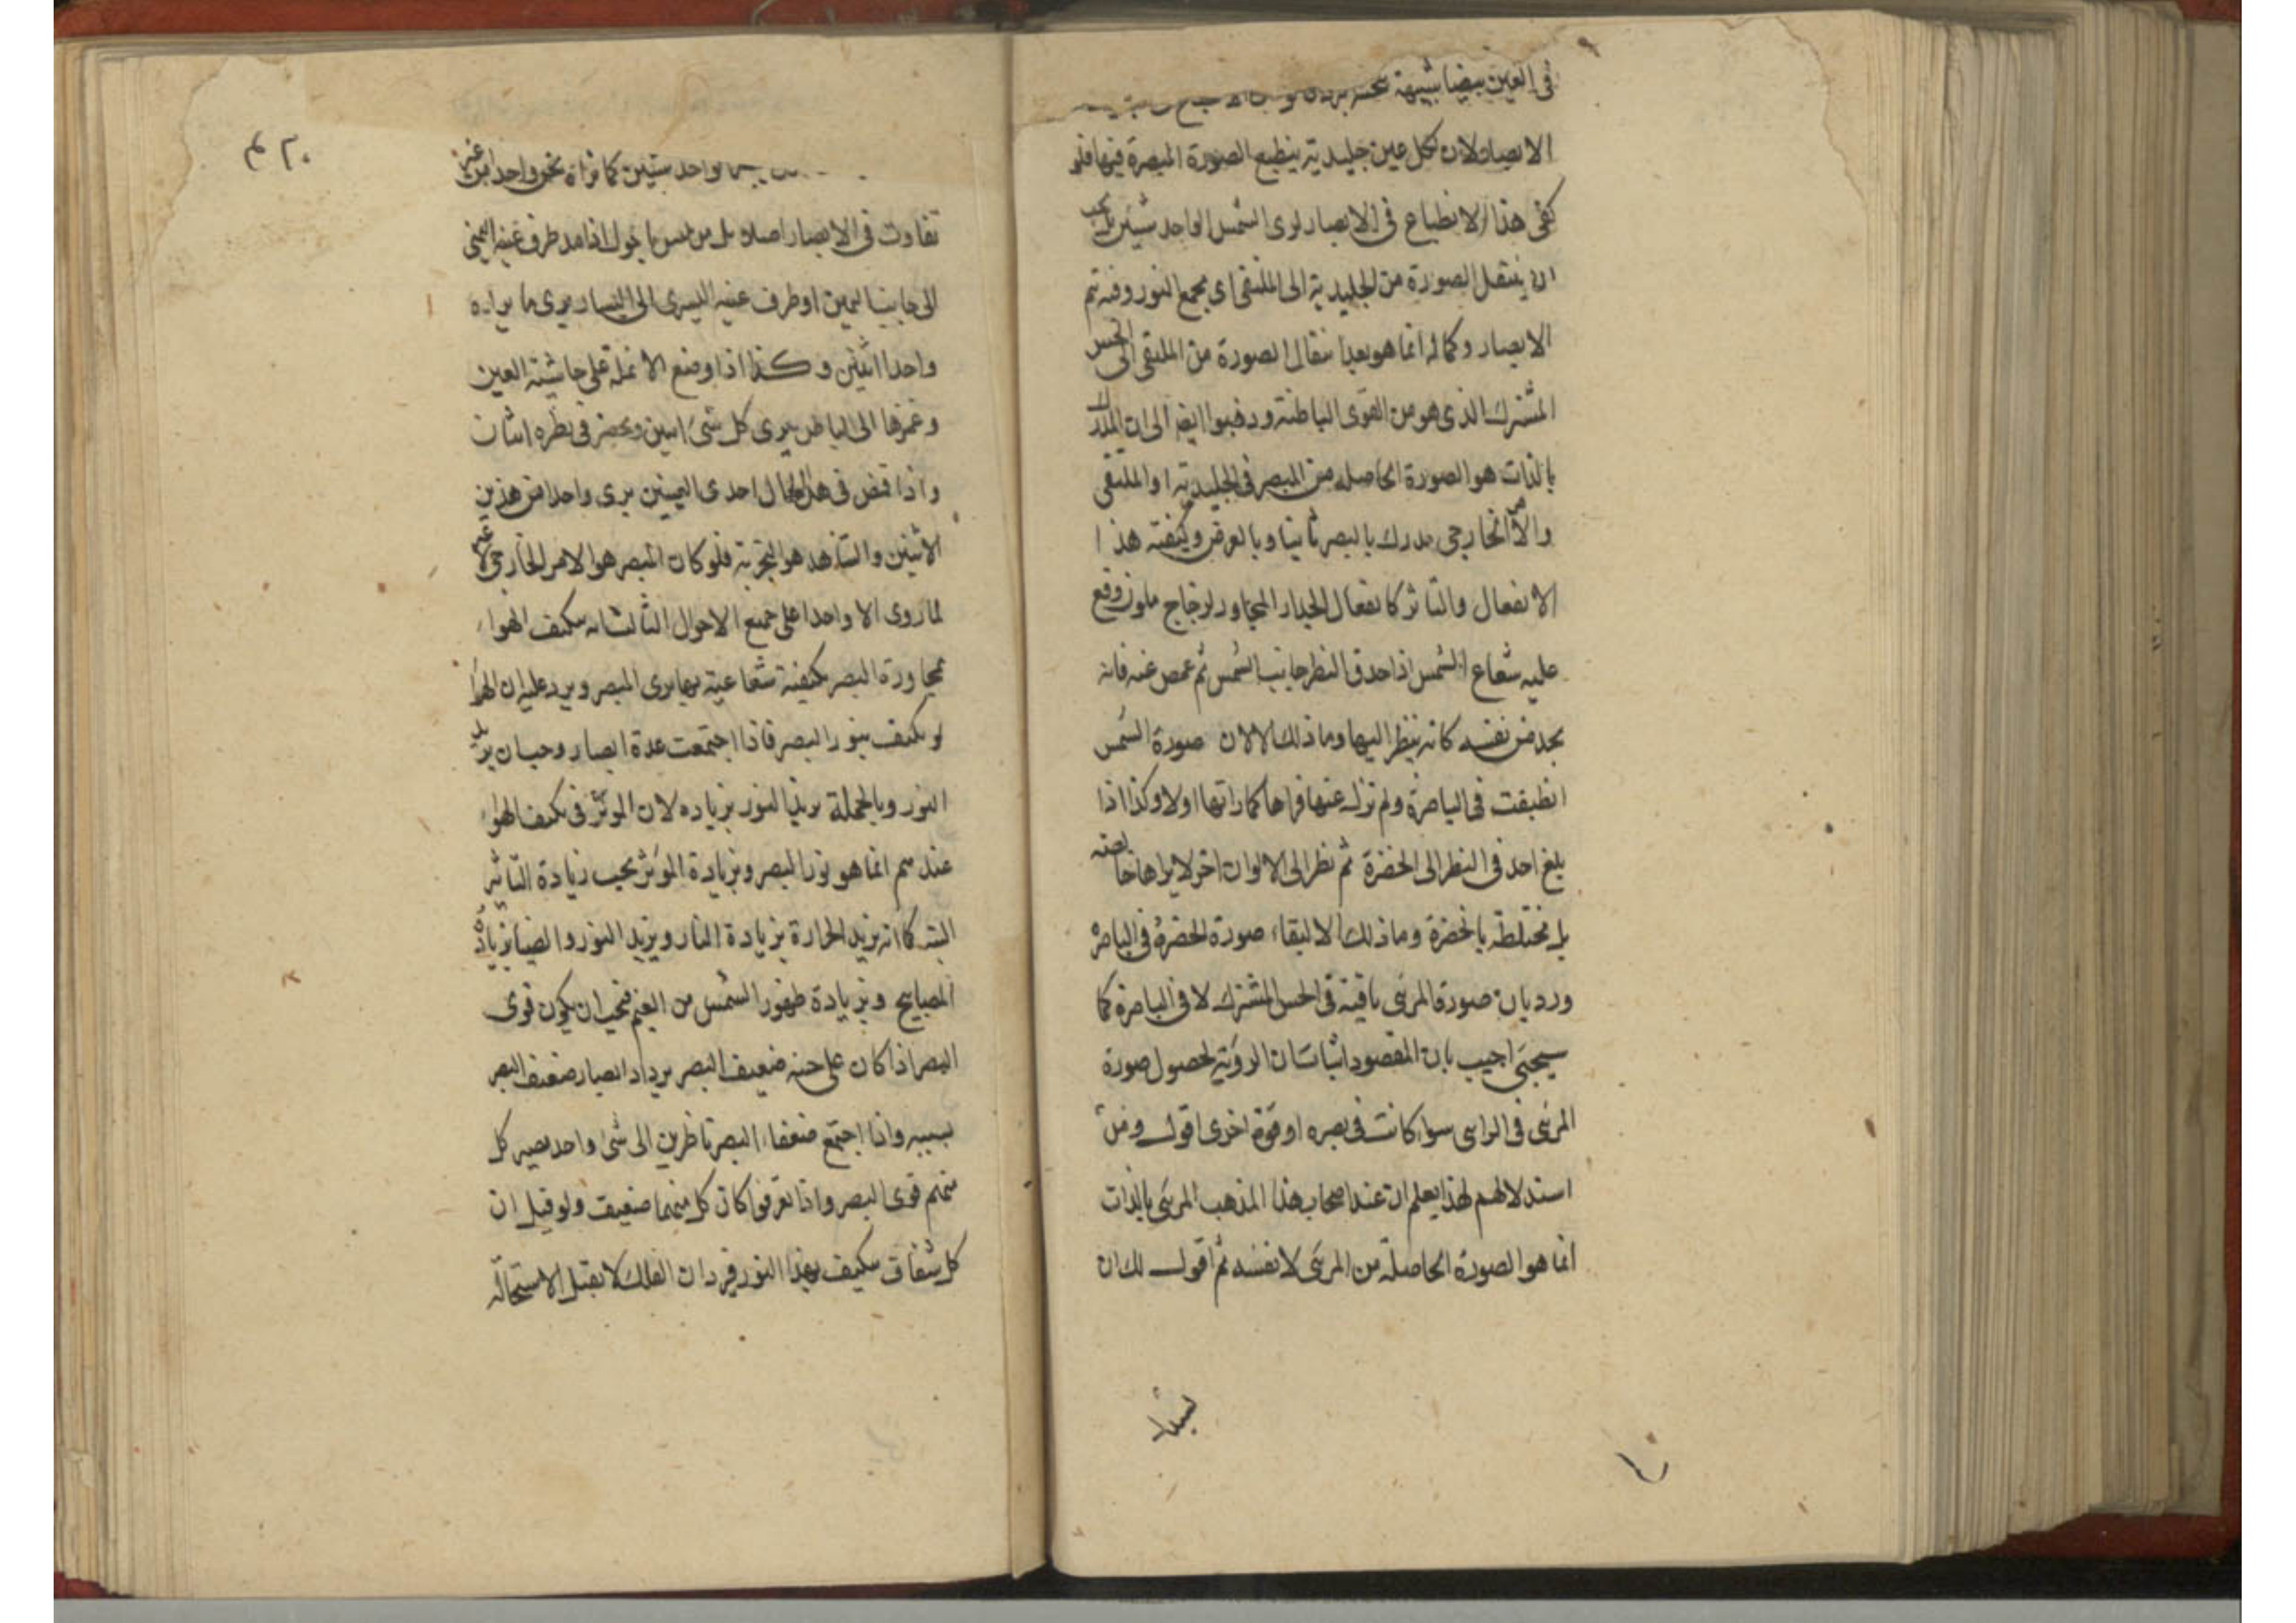 في العين بيضا شبيهة
الابصار ولان لكل عين جليدية ينطبع الصورة المبصرة فيها فلو
كفى هذا الانطباع في الابصار لرى الشمس الواحد شيئين بل يجب
ان ينتقل الصورة من الجليدية الى الملتقى اى مجمع النور وفيه تم
الابصار وكماله انما هو بعد انتقال الصورة من الملتقى الى الحس
المشترك الذى هو من القوى الباطنة وذهبوا ايضه الى ان المدرك
بالذات هو الصورة الحاصلة من المبصر في الجليدية او الملتقى
والامر الخارجي مدرك بالبصر ثانيا وبالعرض وكيفية هذا
الانفعال والتاثر كانفعال الجدار المجاور لزجاج ملون وقع
عليه شعاع الشمس اذا حدق النظر جانب الشمس ثم غمض عنه فانه
يجد من نفسه كانه ينظر اليها وما ذلك الا لان صورة الشمس
انطبقت في الباصرة ولم تزل عنها فراها كما راتها اولا وكذا اذا
بلغ احد في النظر الى الخضرة ثم نظر الى الالوان اخر لا يراها خالصة
بل مختلطة بالخضرة وما ذلك الا لبقاء صورة الخضرة في الباصرة
ورد بان صورة المرئى باقية في الحس المشترك لا في الباصرة كما
سيجئ اجيب بان المقصود اثبات ان الرؤية لحصول صورة
المرئى في الرائى سواء كانت في بصره او قوة اخرى اقول ومن
استدلالهم لهذا يعلم ان عند اصحاب هذا المذهب المرئى بالذات
انما هو الصورة الحاصلة من المرئى لا نفسه ثم اقول لك ان
٢٠٤
واحد ستين كما تراه نحن واحدا من غير
تفاوت في الابصار اصلا بل من ليس باحول اذا مد طرف عينه اليمنى
الى جانب اليمين او طرف عينه اليسرى الى اليسار يرى ما يراه
واحدا اثنين وكذا اذا وضع الانملة على حاشية العين
وغمزها الى الباطن يرى كل شئ اثنين ويحضر في نظره اثنان
واذا قبض في هذا الحال احدى العينين يرى واحدا من هذين
الاثنين والشاهد هو التجربة فلو كان المبصر هو الامر الخارجى لا غير
لما روى الا واحدا على جميع الاحوال الثالث انه يتكيف الهواء
بمجاورة البصر بكيفية شعاعية بها يرى المبصر ويرد عليه ان الهواء
لو تكيف بنور البصر فاذا اجتمعت عدة ابصار وجب ان يزيد
النور وبالجملة يزيد النور بزياده لان المؤثر في تكيف الهواء
عندهم انما هو نور البصر وبزيادة المؤثر يجب زيادة التاثير
البتة كما انه يزيد الحرارة بزيادة النار ويزيد النور والضيا بزيادة
المصابيح وبزيادة ظهور الشمس من الغيم فيجب ان يكون قوى
البصر اذا كان على جنبه ضعيف البصر يزداد ابصار ضعيف البصر
بسببه واذا اجتمع ضعفاء البصر ناظرين الى شئ واحد يصير كل
منهم قوى البصر واذا تفرقوا كان كل منهما ضعيف ولو قيل ان
كل شفاف يتكيف بهذا النور فيرد ان الفلك لا يقبل الاستحالة